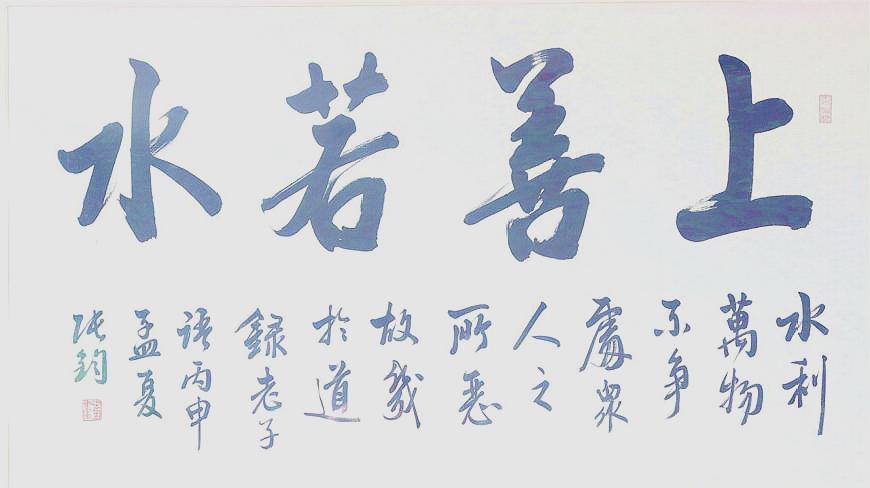 上善若水
水利
萬物
不争
處眾
人之
所惡
故幾
於道
錄老子
語丙申
孟夏
張鈞